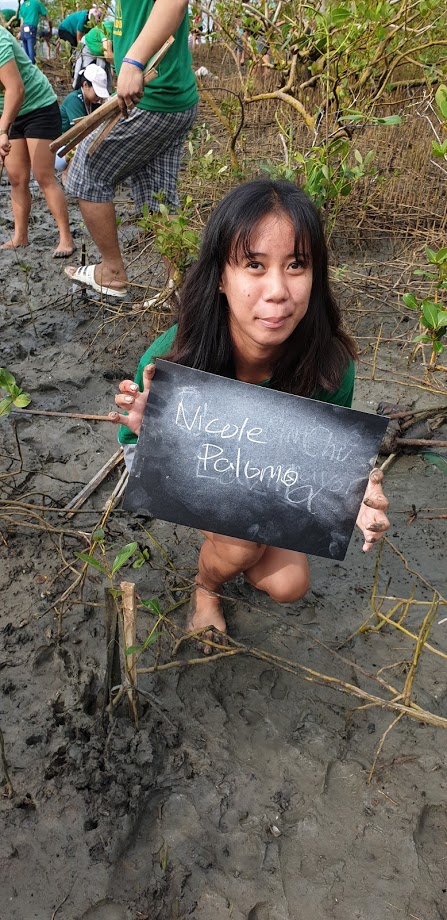 Nicole
Palomo